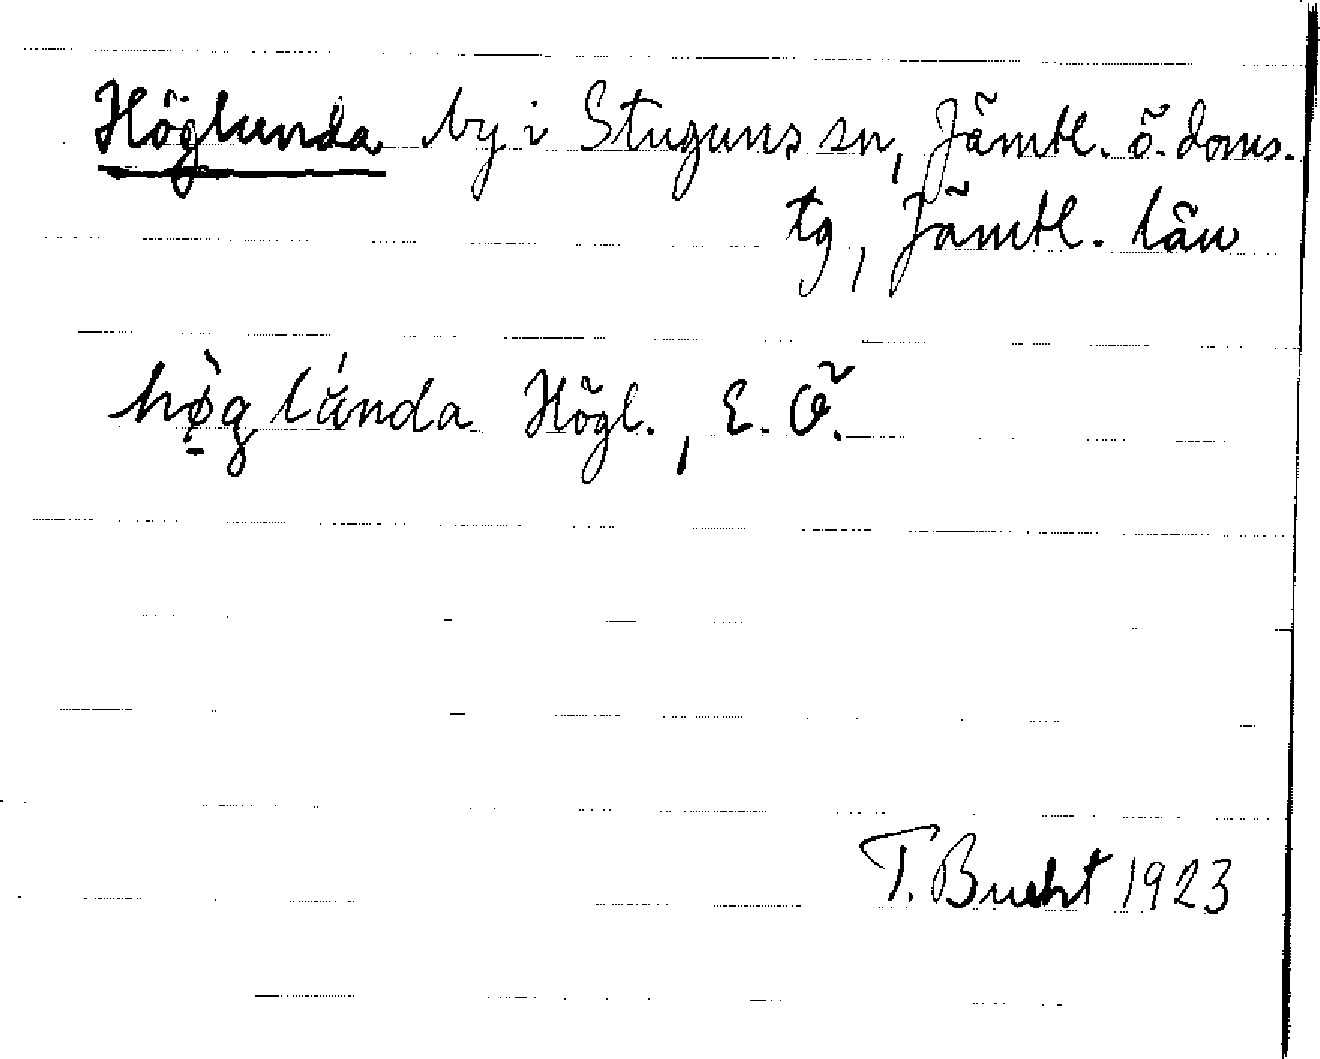 Höglunda by i Stuguns sn, Jämtl. ö. doms.
tg, Jämtl. län
hø̀g lánda Högl., E. Ö.
T. Bucht 1923